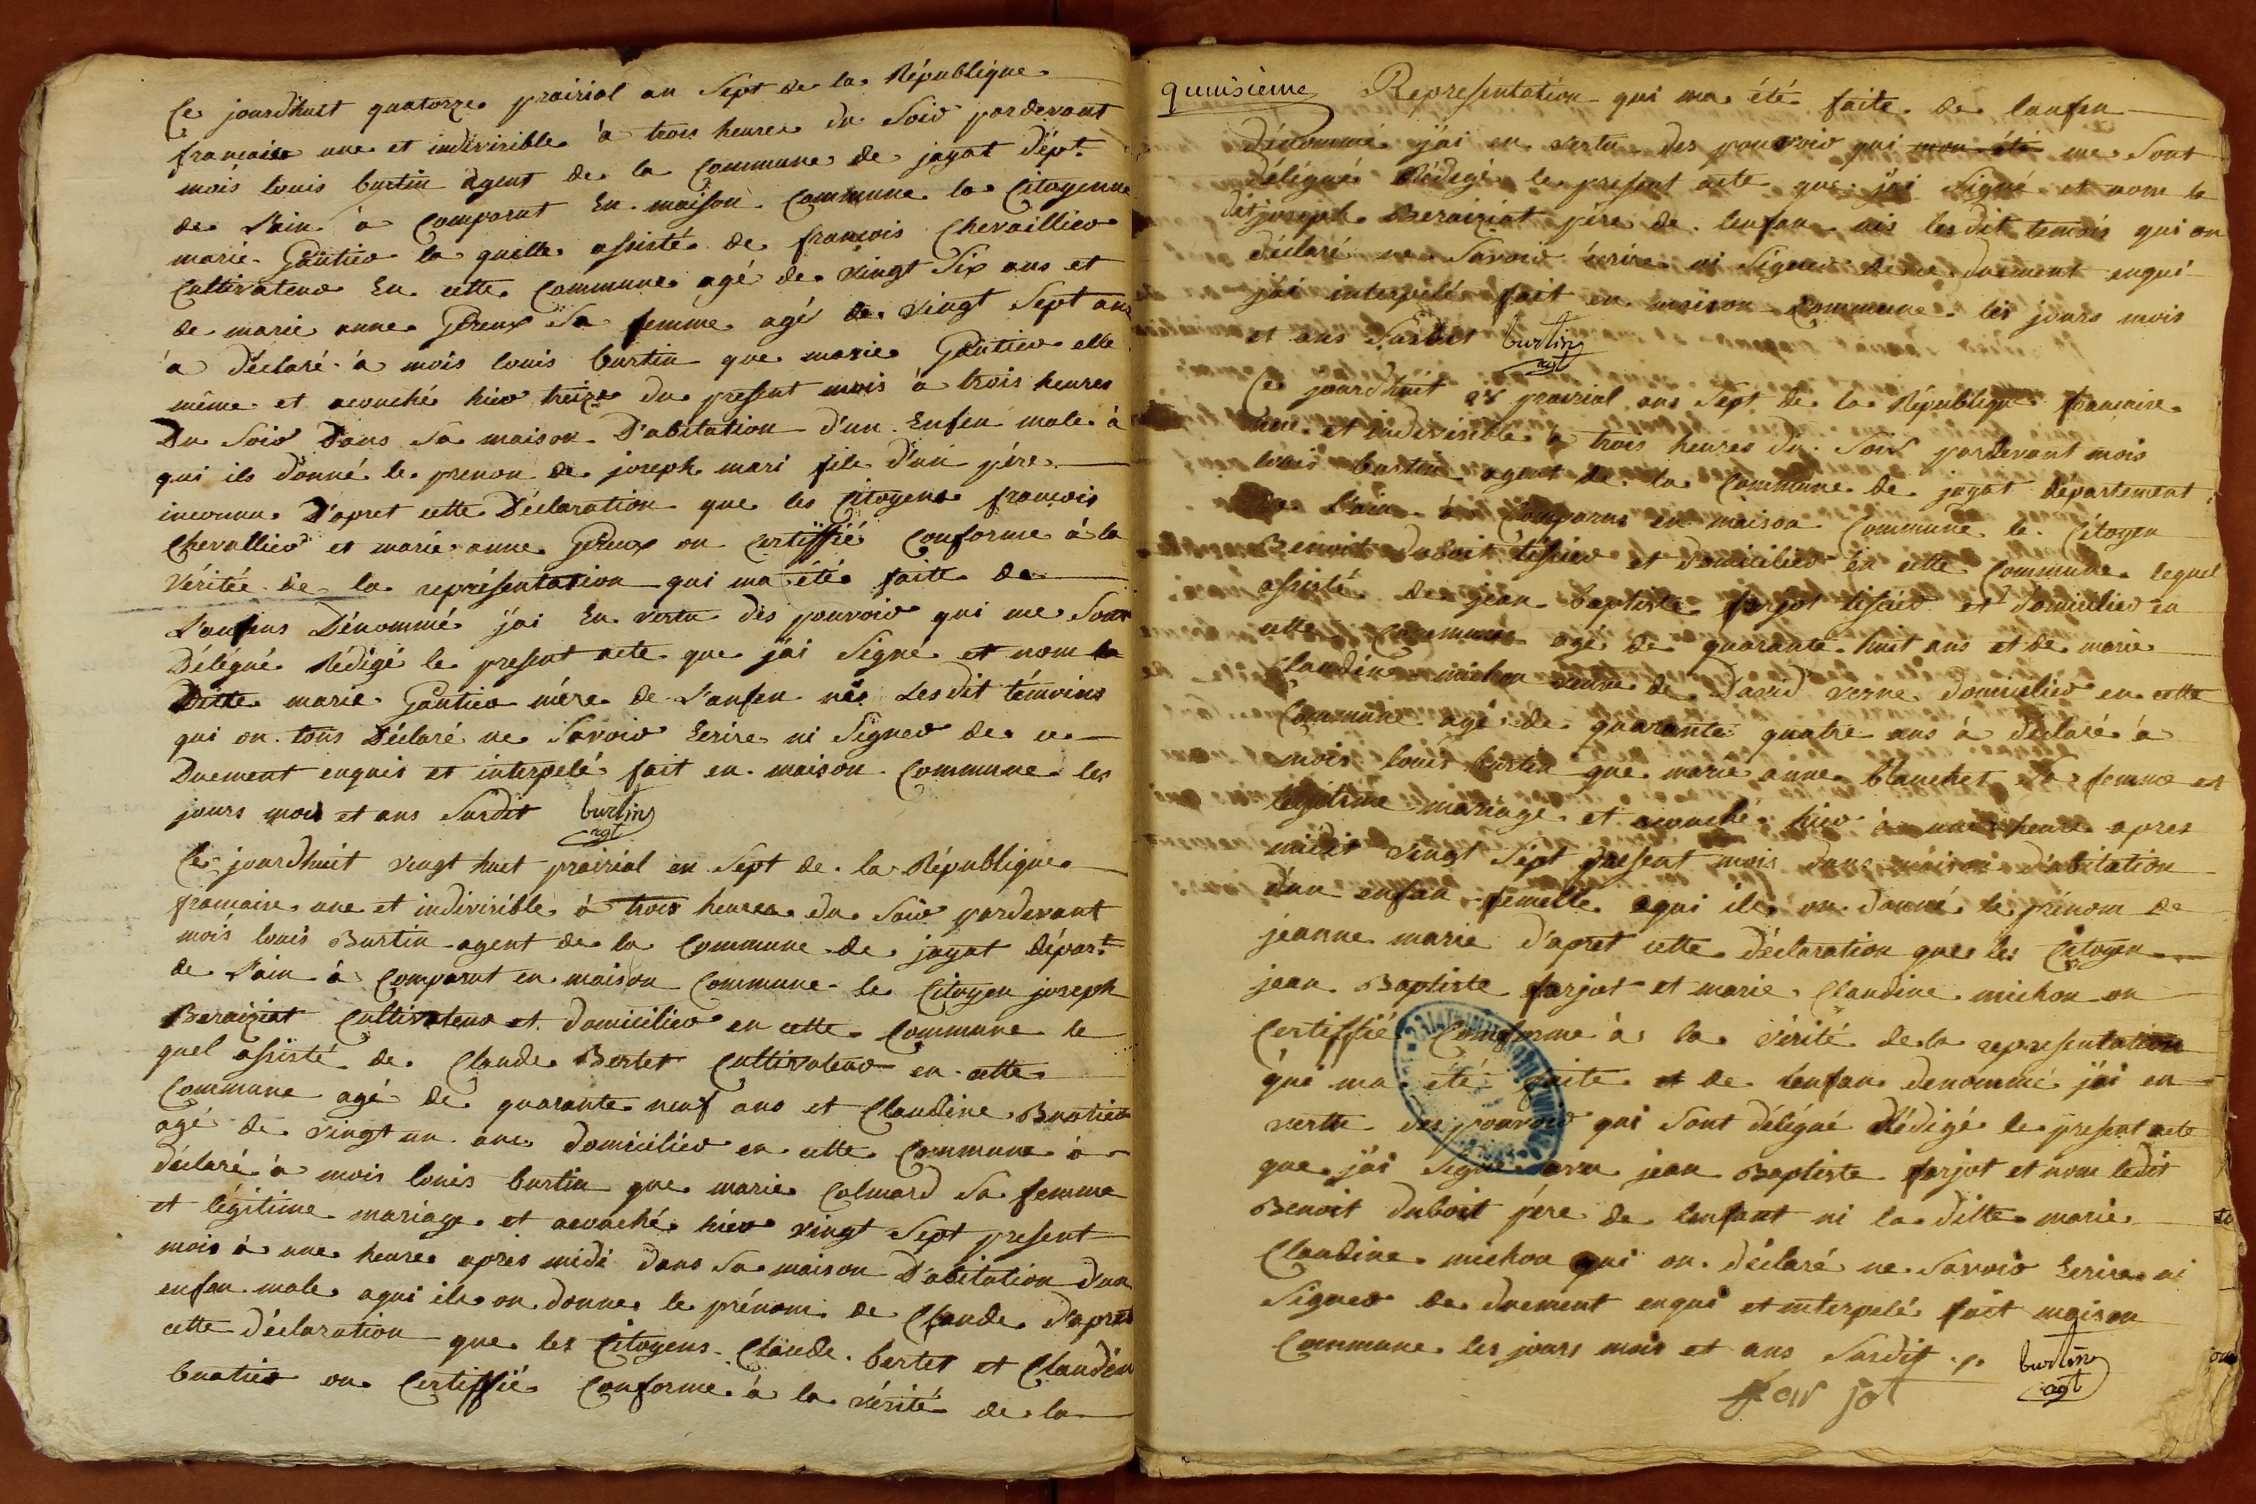 Ce jourdhuit quatorze prairial an Sept de la République
francaise une et indivisible à trois heures du Soir pardevant
mois louis burtin agent de la Commune de jayat dépt.
de l'ain à Comparut En maison Commune la Citoyenne
marie Gautier la quelle assisté de francois Chevaillier
Cultivateur En cette Commune agé de vingt Six ans et
de marie anne Sa femme agé de vingt Sept ans
à déclaré à mois louis burtin que marie Gautier elle
même et acouché hier treize du present mois à trois heures
Du Soir Dans Sa maison D'abitation d'un Enfen male à
qui ils donné le prenon de joseph mari fils d'un pére
inconnu D'apret cette Déclaration que les Citoyens francois
Chevallier et marie anne on Certiffié Conforme à la
Véritée de la représentation qui ma été faite de
L'anfens Dénommé j'ai En vertu des pouvoir qui me Sont
Délégué Rédigé le present acte que j'ai Signé et nom la
Ditte marie Gautier mére de L'anfen nis Lesdit témoins
qui on tous Déclaré ne Savoir Ecrire ni Signer de ce
Duement enquis et interpelé fait en maison Commune les
jours mois et ans Surdit burtin
agt
Ce jourdhuit vingt huit prairial an Sept de la République
francaise une et indivisible à trois heures du Soir pardevant
mois louis Burtin agent de la Commune de jayat départ.
de l'ain à Comparut en maison Commune le Citoyen joseph
Beraiziat Cultivateur et domicilier en cette Commune le
quel assisté de Claude Bertet Cultivateur en cette
Commune agé de quarante neuf ans et Claudine Buatier
agé de vingt un ans domicilier en cette Commune à
déclaré à mois louis burtin que marie Calmard Sa femme
et légitime mariage et acouché hier vingt Sept present
mois à une heure apres midi dans Sa maison D'abitation d'un
enfan male aqui ils on donne le prénom de Claude D'apret
cette déclaration que les Citoyens Claude bertet et Claudin
buatier on Certiffié Conforme à la vérité de la
quinsieme Representation qui ma été faite de lanfen
Dénommé j'ai en vertu des pouvoir qui mon été me Sont
délégué Rédigé le present acte que j'ai Signé et nom le
dit joseph Beraiziat pére de lenfan nis lesdit temois qui on
déclaré ne Savoir écrire ni Signer de ce duement enqui
j'ai interpelé fait en maison Commune les jours mois
et ans Surdit burtin
agt
Ce jourdhuit 28 prairial ans Sept de la République francaise
une et indivisible à trois heures du Soir pardevant mois
louis burtin agent de la Commune de jayat departement
de l'ain à Comparus en maison Commune le Citoyen
Benoit Duboit tessier et domicilier en cette Commune lequel
assisté de jean baptiste farjot tessier et domicilier en
cette Commune agé de quarante huit ans et de marie
Claudine michon veuve de David verne domicilier en cette
Commune agé de quarante quatre ans à déclaré à
mois louis burtin que marie anne blanchet Sa femme et
légitime mariage et acouché hier à une heure apres
midit vingt Sept present mois dans maison d'abitation
d'un enfan femelle aqui ils on donné le prénom de
jeanne marie d'apret cette déclaration que les Citoyen
jean Baptiste farjot et marie Claudine michon on
Certiffié Conforme à la vérité de la representation
qui ma été faite et de lenfan denommé j'ai en
vertu des pouvoir qui Sont délégué Rédigé le present acte
que j'ai Signé avec jean Baptiste farjot et nom ledit
Benoit duboit pére de lenfant ni la ditte marie
Claudine michon qui on déclaré ne Savoir Ecrire ni
Signer de duement enqui et interpelé fait maison
Commune les jours mois et ans Surdit burtin
agt
far jot